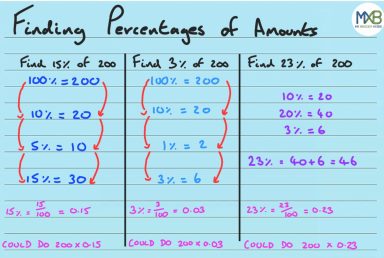 Finding Percentages of Amounts
MXB
Find 15% of 200
100% = 200
10% = 20
5% = 10
15% = 30
15% = 15/100 = 0.15
COULD DO 200 x 0.15
Find 3% of 200
100% = 200
10% = 20
1% = 2
3% = 6
3% = 3/100 = 0.03
COULD DO 200 x 0.03
Find 23% of 200
10% = 20
20% = 40
3% = 6
23% = 40+6 = 46
23% = 23/100 = 0.23
COULD DO 200 x 0.23